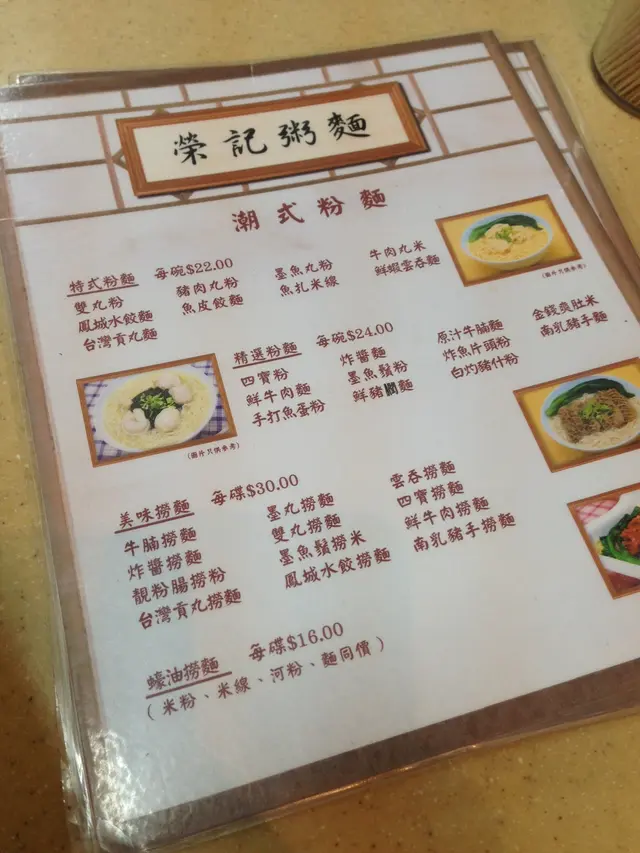 榮記粥麵
潮式粉麵
特式粉麵 每碗$22.00
雙丸粉 豬肉丸粉 墨魚丸粉 牛肉丸米
鳳城水餃麵 魚皮餃麵 魚扎米線 鮮蝦雲吞麵
台灣貢丸麵
(圖片只供參考)
精選粉麵 每碗$24.00
四寶粉 炸醬麵 原汁牛腩麵 金錢爽肚米
鮮牛肉麵 墨魚鬚粉 炸魚片頭粉 南乳豬手麵
手打魚蛋粉 鮮豬潤麵 白灼豬什粉
(圖片只供參考)
美味撈麵 每碟$30.00
牛腩撈麵 墨丸撈麵 雲吞撈麵
炸醬撈麵 雙丸撈麵 四寶撈麵
靚粉腸撈粉 墨魚鬚撈米 鮮牛肉撈麵
台灣貢丸撈麵 鳳城水餃撈麵 南乳豬手撈麵
蠔油撈麵 每碟$16.00
(米粉、米線、河粉、麵同價)